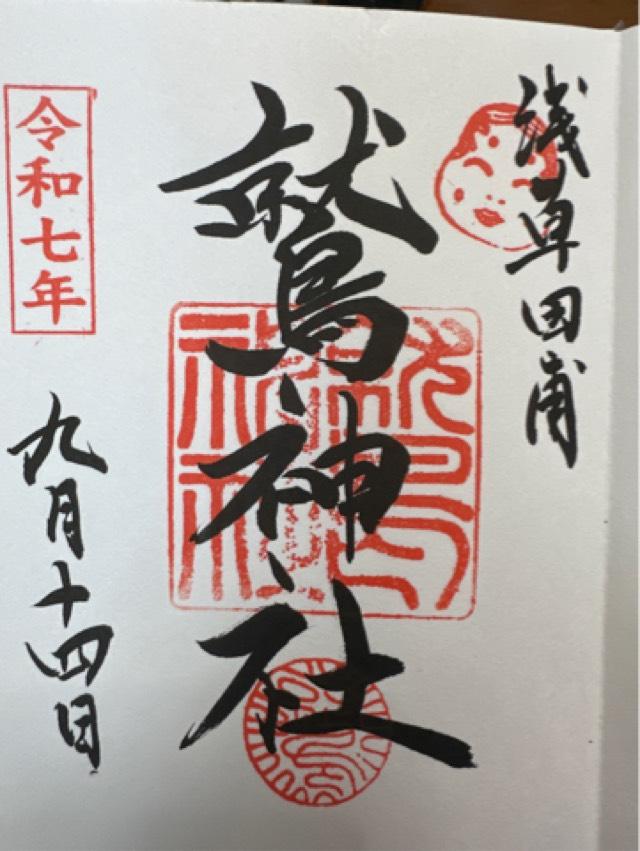 浅草田甫
鷲神社
令和七年
九月十四日